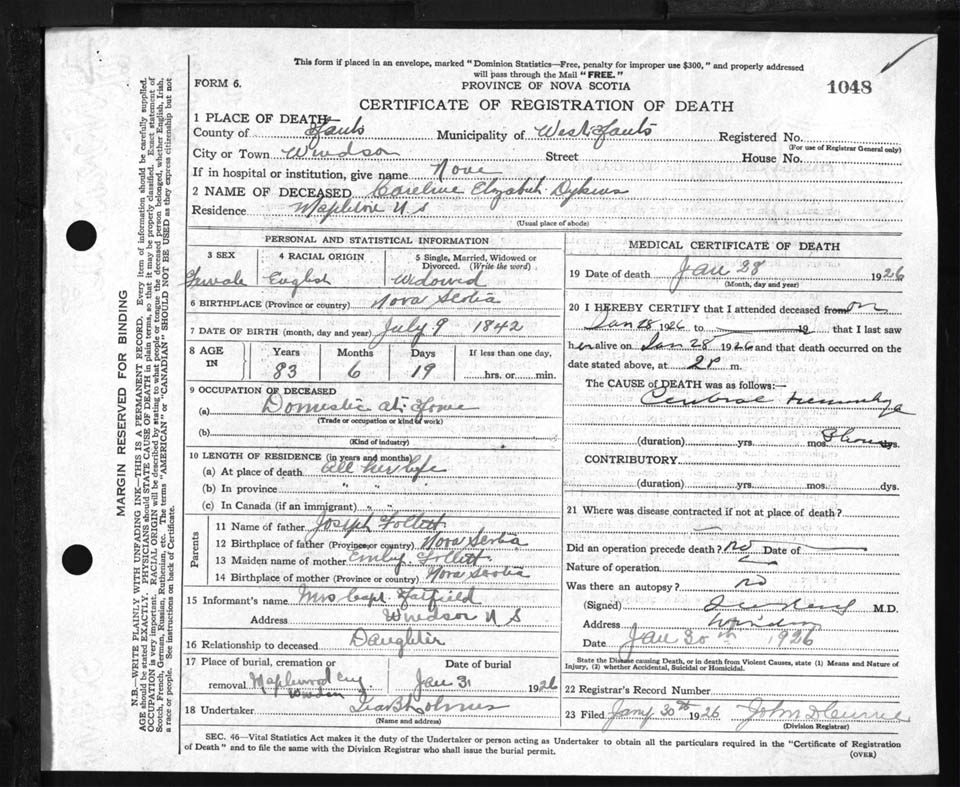 This form if placed in an envelope, marked "Dominion Statistics—Free, penalty for improper use $300," and properly addressed
will pass through the Mail "FREE."
FORM 6.
PROVINCE OF NOVA SCOTIA
1048
CERTIFICATE OF REGISTRATION OF DEATH
1 PLACE OF DEATH—
County of Hants Municipality of West Hants Registered No.
(For use of Registrar General only)
City or Town Windsor Street House No.
If in hospital or institution, give name None
2 NAME OF DECEASED Careline Elizabeth Dykens
Residence N S
(Usual place of abode)
PERSONAL AND STATISTICAL INFORMATION
3 SEX 4 RACIAL ORIGIN 5 Single, Married, Widowed or Divorced. (Write the word)
Female English Widowed
6 BIRTHPLACE (Province or country) Nova Scotia
7 DATE OF BIRTH (month, day and year) July 9 1842
8 AGE IN Years Months Days If less than one day,
83 6 19 hrs. or min.
9 OCCUPATION OF DECEASED
(a) Domestic at Home
(Trade or occupation or kind of work)
(b)
(Kind of industry)
10 LENGTH OF RESIDENCE (in years and months)
(a) At place of death all her life
(b) In province " "
(c) In Canada (if an immigrant) " "
Parents
11 Name of father Joseph Follett
12 Birthplace of father (Province or country) Nova Scotia
13 Maiden name of mother Emily Follett
14 Birthplace of mother (Province or country) Nova Scotia
15 Informant's name Mrs Capt. Hatfield
Address Windsor N S
16 Relationship to deceased Daughter
17 Place of burial, cremation or removal Maplewood Cem Windsor
Date of burial Jan 31 1926
18 Undertaker Holmes
(Name and address)
MEDICAL CERTIFICATE OF DEATH
19 Date of death Jan 28 1926
(Month, day and year)
20 I HEREBY CERTIFY that I attended deceased from on
Jan 28 1926 to 19 that I last saw
her alive on Jan 28 1926 and that death occurred on the
date stated above, at 2 P m.
The CAUSE of DEATH was as follows:—
Cerebral Hemorrhage
(duration) yrs. mos. hours dys.
CONTRIBUTORY
(duration) yrs. mos. dys.
21 Where was disease contracted if not at place of death?
Did an operation precede death? no Date of
Nature of operation
Was there an autopsy? no
(Signed) M.D.
Address Windsor
Date Jan 30th 1926
State the Disease causing Death, or in death from Violent Causes, state (1) Means and Nature of
Injury, (2) whether Accidental, Suicidal or Homicidal.
22 Registrar's Record Number
23 Filed Jany 30th 1926 John
(Division Registrar)
SEC. 46—Vital Statistics Act makes it the duty of the Undertaker or person acting as Undertaker to obtain all the particulars required in the "Certificate of Registration
of Death" and to file the same with the Division Registrar who shall issue the burial permit.
(OVER)
MARGIN RESERVED FOR BINDING
N.B.—WRITE PLAINLY WITH UNFADING INK—THIS IS A PERMANENT RECORD. Every item of information should be carefully supplied.
AGE should be stated EXACTLY. PHYSICIANS should STATE CAUSE OF DEATH in plain terms, so that it may be properly classified. Exact statement of
OCCUPATION is very important. RACIAL ORIGIN will be described by stating to what people or tongue the deceased person belonged, whether English, Irish,
Scotch, French, German, Russian, Ruthenian, etc. The terms "AMERICAN" or "CANADIAN" SHOULD NOT BE USED as they express citizenship but not
a race or people. See instructions on back of Certificate.